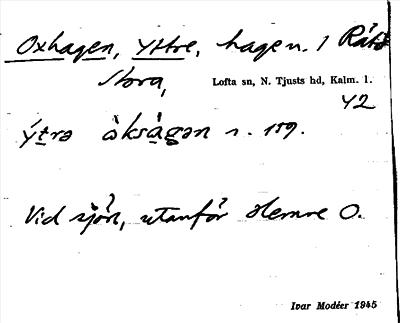 Oxhagen, Yttre, hagen. 1
Stora,
Lofta sn, N. Tjusts hd, Kalm. l.
42
ýtrə òksàgən n. 159.
Vid sjön, utanför Hemre O.
Ivar Modéer 1945